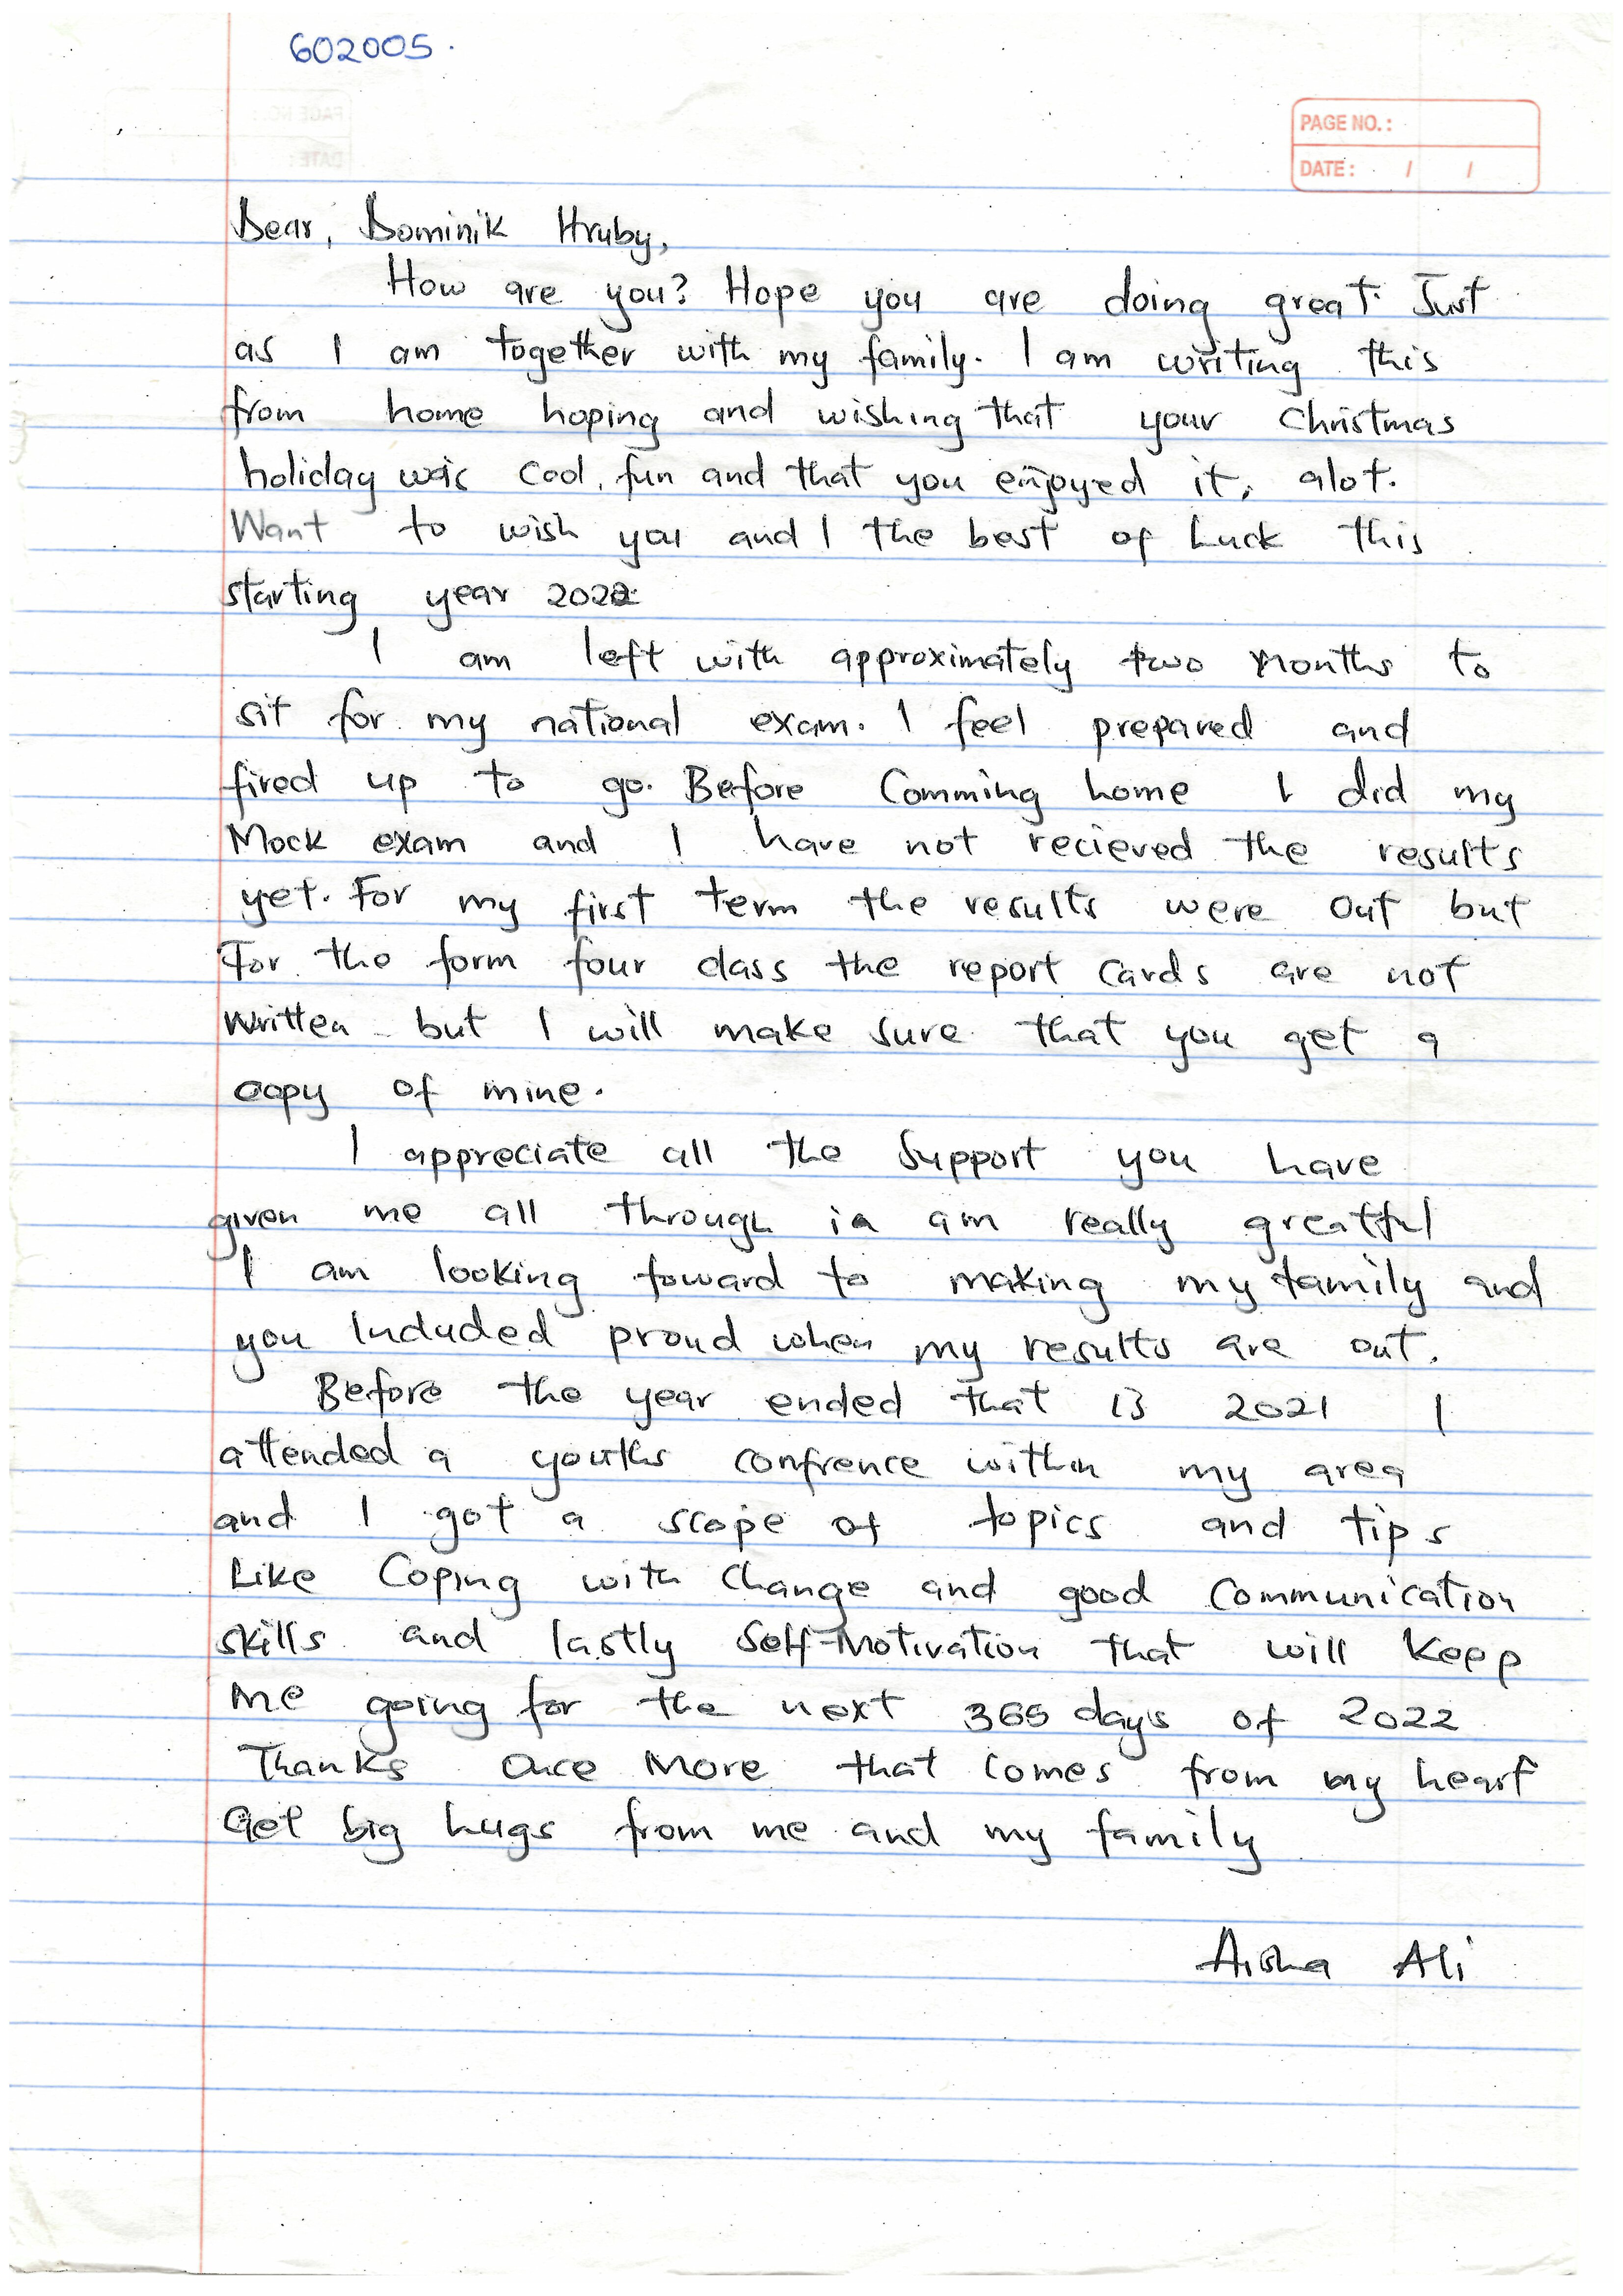 602005.
PAGE NO.:
DATE: / /
Dear, Dominik Hruby,
How are you? Hope you are doing great. Just
as I am together with my family. I am writing this
from home hoping and wishing that your Christmas
holiday was cool, fun and that you enjoyed it, alot.
Want to wish you and I the best of Luck this
starting year 2022.
I am left with approximately two months to
sit for my national exam. I feel prepared and
fired up to go. Before Comming home I did my
Mock exam and I have not recieved the results
yet. For my first term the results were out but
For the form four class the report cards are not
written but I will make sure that you get a
copy of mine.
I appreciate all the support you have
given me all through ia am really greatful
I am looking foward to making my family and
you Included proud when my results are out.
Before the year ended that is 2021 I
attended a youths confrence within my area
and I got a scope of topics and tips
Like Coping with Change and good Communication
skills and lastly Self-Motivation that will keep
me going for the next 365 days of 2022
Thanks Once More that comes from my heart
Get big hugs from me and my family
Aisha Ali